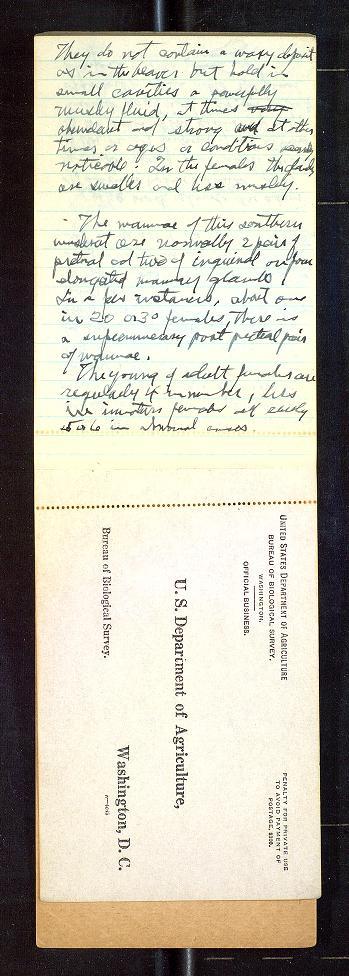 They do not contain a waxy deposit
as in the beaver but hold in
small cavities a powerfully
musky fluid, at times very
abundant and strong and at other
times or ages or conditions scarcely
noticeable. In the females the glands
are smaller and less musky.
The mammae of this southern
muskrat are normally 2 pairs of
pectoral and two of inguinal on four
elongated mammary glands.
In a few instances, about one
in 20 or 30 females, there is
a supernumerary post pectoral pair
of mammae.
The young of adult females are
regularly 4 in number, less
in immature females and rarely
5 or 6 in abnormal cases.
UNITED STATES DEPARTMENT OF AGRICULTURE
BUREAU OF BIOLOGICAL SURVEY.
WASHINGTON.
OFFICIAL BUSINESS.
PENALTY FOR PRIVATE USE
TO AVOID PAYMENT OF
POSTAGE, $300.
U. S. Department of Agriculture,
Bureau of Biological Survey.
Washington, D. C.